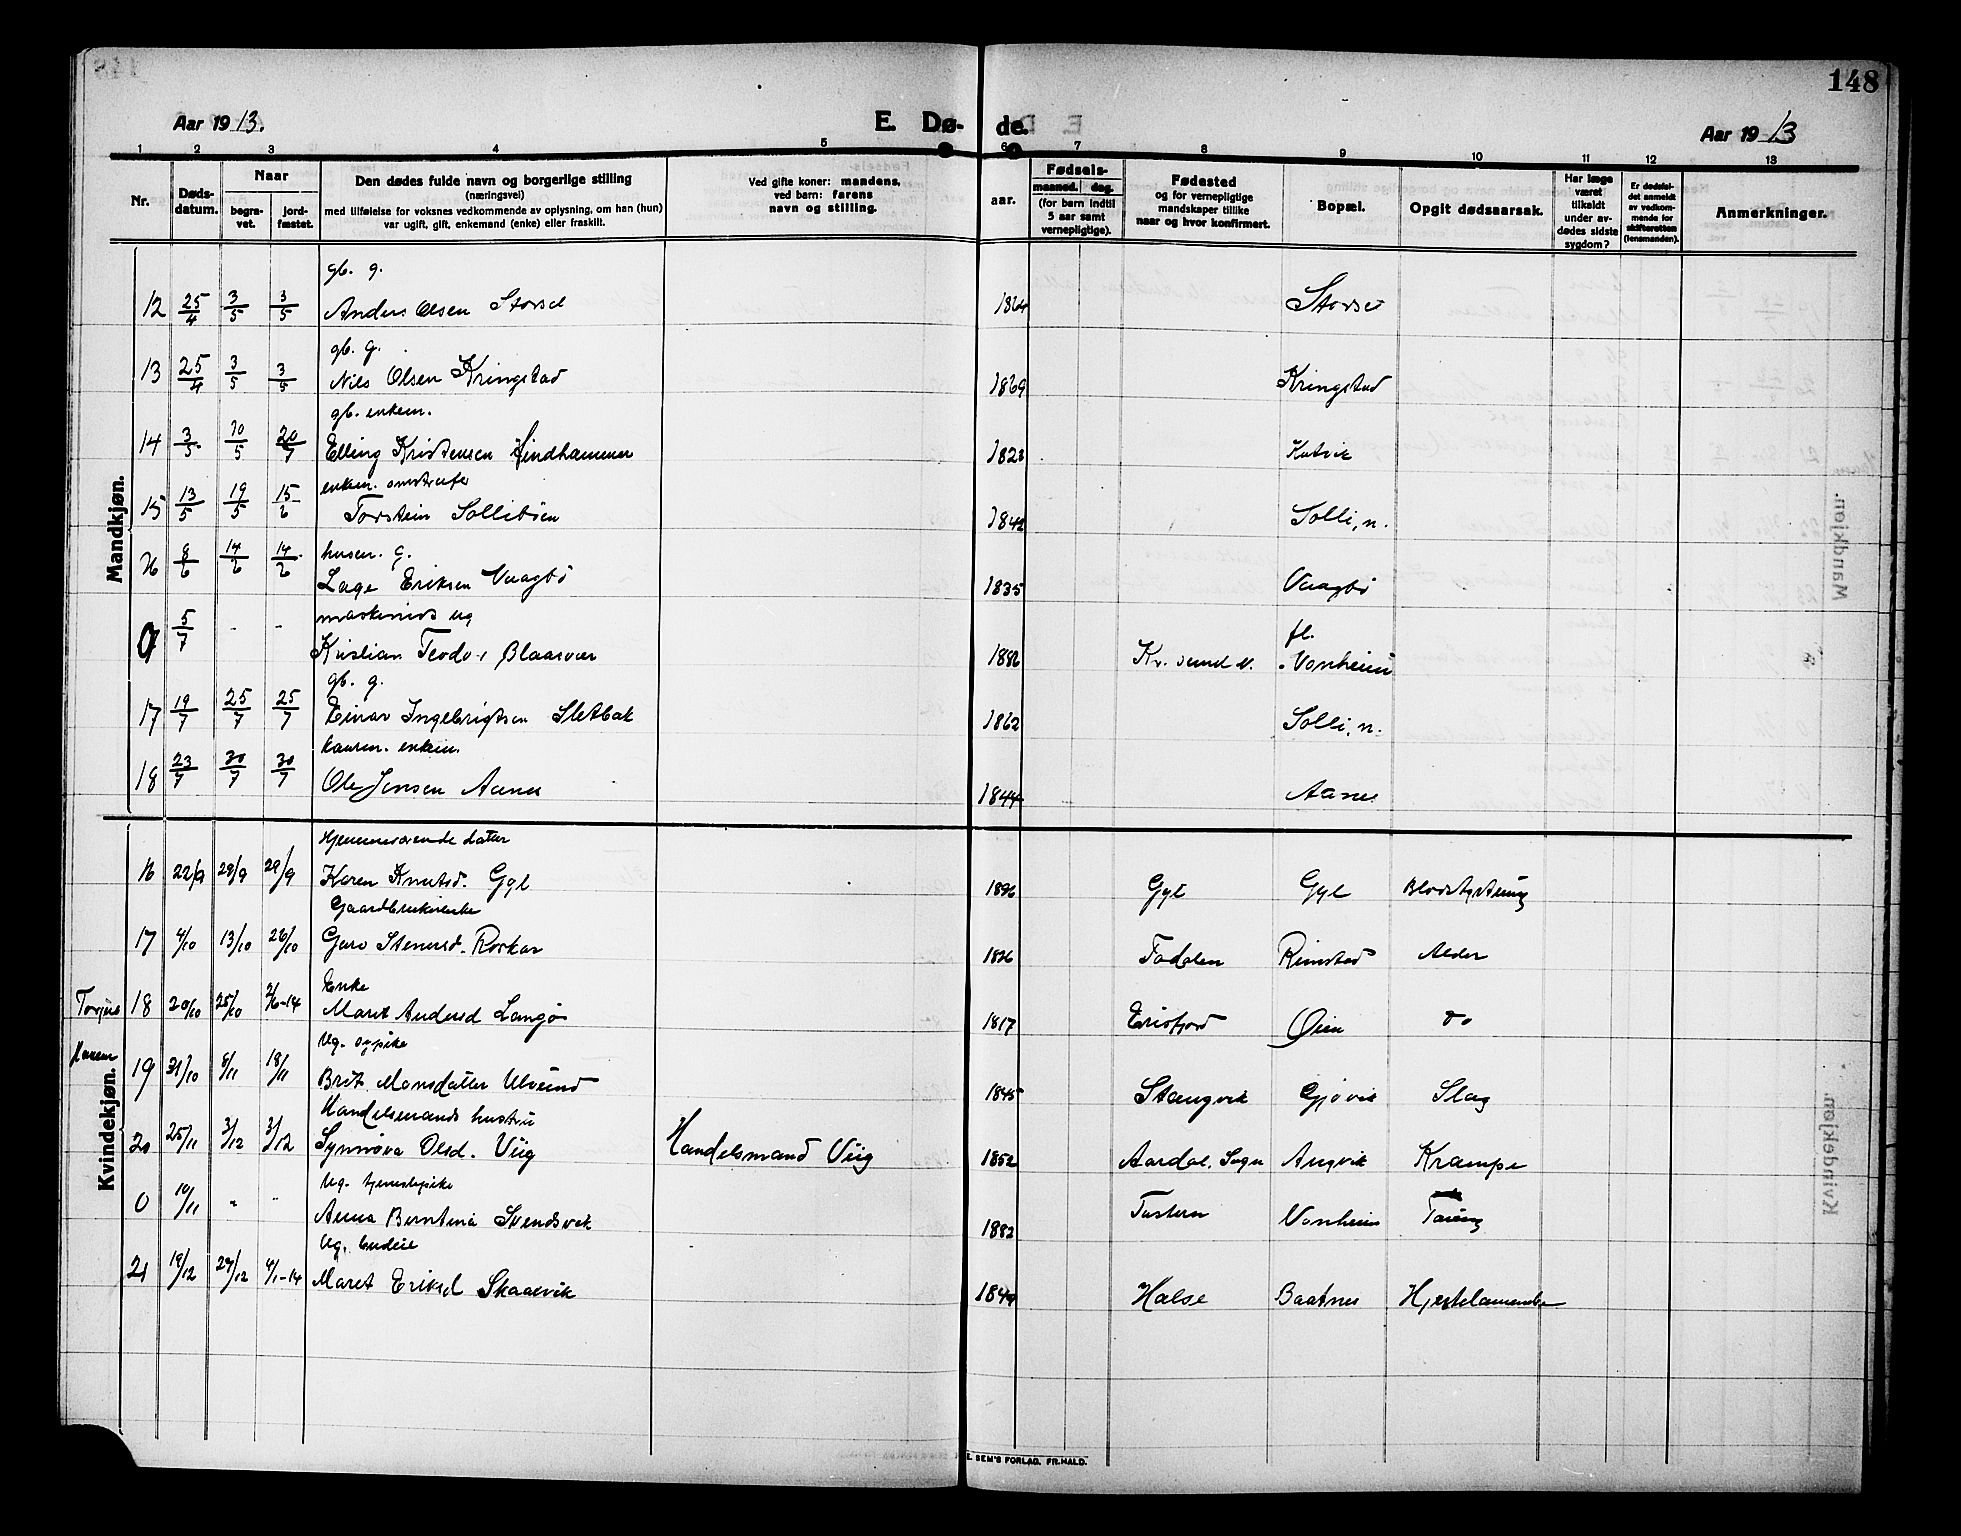 148
Aar 1913.
E. Dø- de.
Aar 1913
1 2 3 4 5 6 7 8 9 10 11 12 13
Nr.
Døds-
datum.
Naar
begra-
vet.
jord-
fæstet.
Den dødes fulde navn og borgerlige stilling
(næringsvei)
med tilføielse for voksnes vedkommende av oplysning, om han (hun)
var ugift, gift, enkemand (enke) eller fraskilt.
Ved gifte koner: mandens,
ved barn: farens
navn og stilling.
aar.
Fødsels-
maaned. dag.
(for barn indtil
5 aar samt
vernepligtige).
Fødested
og for vernepligtige
mandskaper tillike
naar og hvor konfirmert.
Bopæl.
Opgit dødsaarsak.
Har læge
været
tilkaldt
under av-
dødes sidste
sygdom?
Er dødsfal-
det anmeldt
av vedkom-
mende for
skifteretten
(lensmanden).
Anmerkninger.
Mandkjøn.
gb. g.
12 25/4 3/5 3/5 Anders Olsen Storset 1864 Storset
gb. g.
13 25/4 3/5 3/5 Nils Olsen Kringstad 1869 Kringstad
gb. enkem.
14 3/5 10/5 20/7 Elling Kristensen Hindhammer 1823 Kutvik
enkem.
15 13/5 19/5 15/6 Torstein Sollibøen 1842 Solli, n.
husm. g.
16 8/6 14/6 14/6 Lage Eriksen Vaagbø 1835 Vaagbø
maskinist ug
0 5/7 - - Kristian Teodor Blaasvær 1882 Kr. sund N. fl. Vonheim
gb. g.
17 19/7 25/7 25/7 Einar Ingebrigtsen Sletbak 1862 Solli, n.
kaarm. enkem.
18 23/7 30/7 30/7 Ole Jensen Aanes 1844 Aanes
Kvindekjøn.
Hjemmeværende datter
16 22/9 29/9 29/9 Karen Knutsd. Gyl 1896 Gyl Gyl Blodstyrtning
Gaardbrukerenke
17 4/10 13/10 26/10 Guro Stenersd. Roskar 1826 Todalen Rimstad Alder
Enke
18 20/10 25/10 2/6-14 Maret Andersd Langø 1817 Erisfjord Øien do
Ug. sypike
19 31/10 8/11 18/11 Brit Monsdatter Ulvund 1845 Stangvik Gjøvik Slag
Handelsmands hustru
20 25/11 3/12 3/12 Synnøva Olsd. Viig Handelsmand Viig 1852 Aardal, Sogn Angvik Krampe
Ug. tjenestepike
0 10/11 " " Anna Berntina Svendsvik 1882 Tustern Vonheim Tæring
Ug. budeie
21 19/12 27/12 4/1-14 Maret Eriksd Skaalvik 1849 Halse Baatnes Hjertelammelse
E. SEM'S FORLAG. FR.HALD.